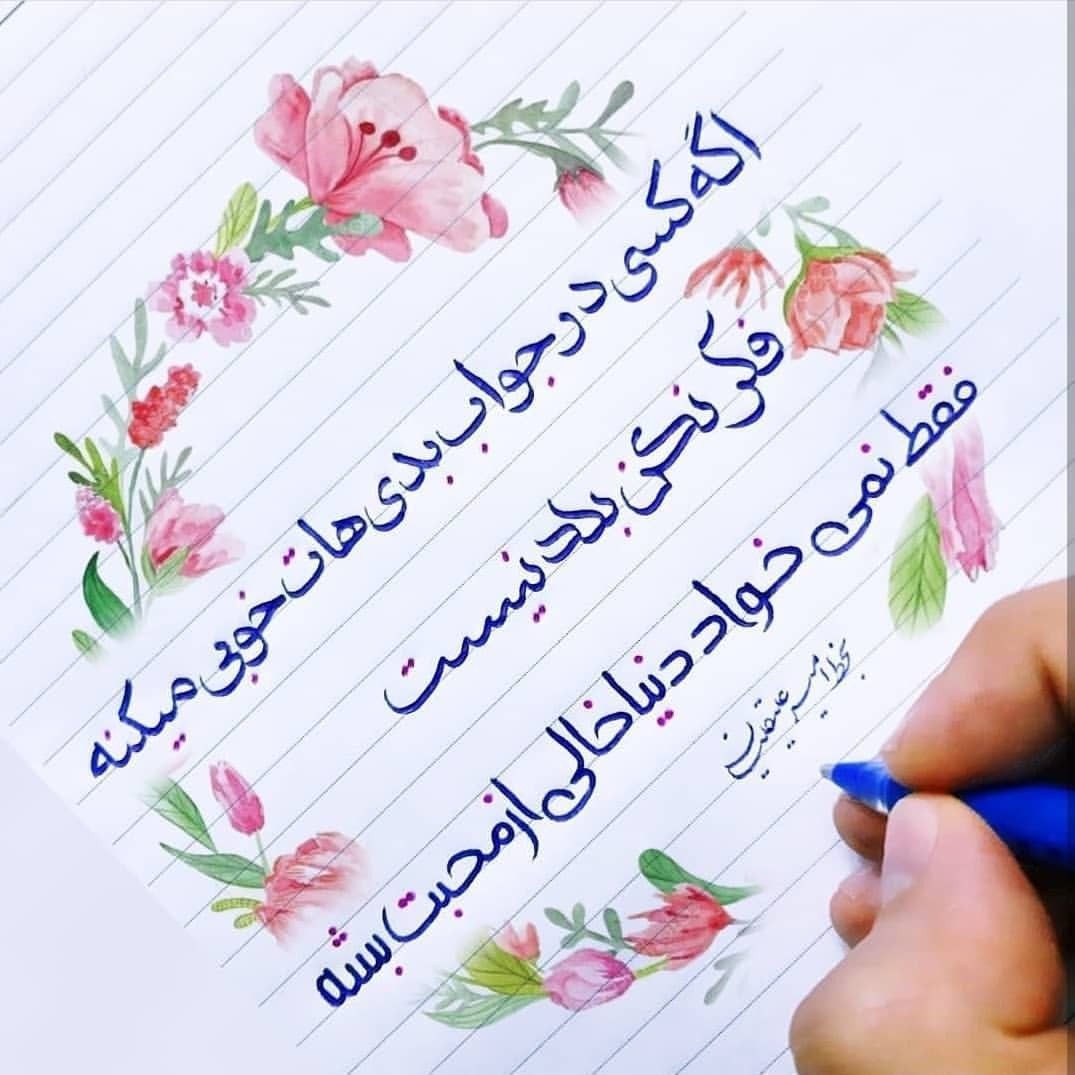 اگه کسی در جواب بدی هات خوبی میکنه
فکر نکن بلد نیست
فقط نمی خواد دنیا خالی از محبت بشه
بخط امیر